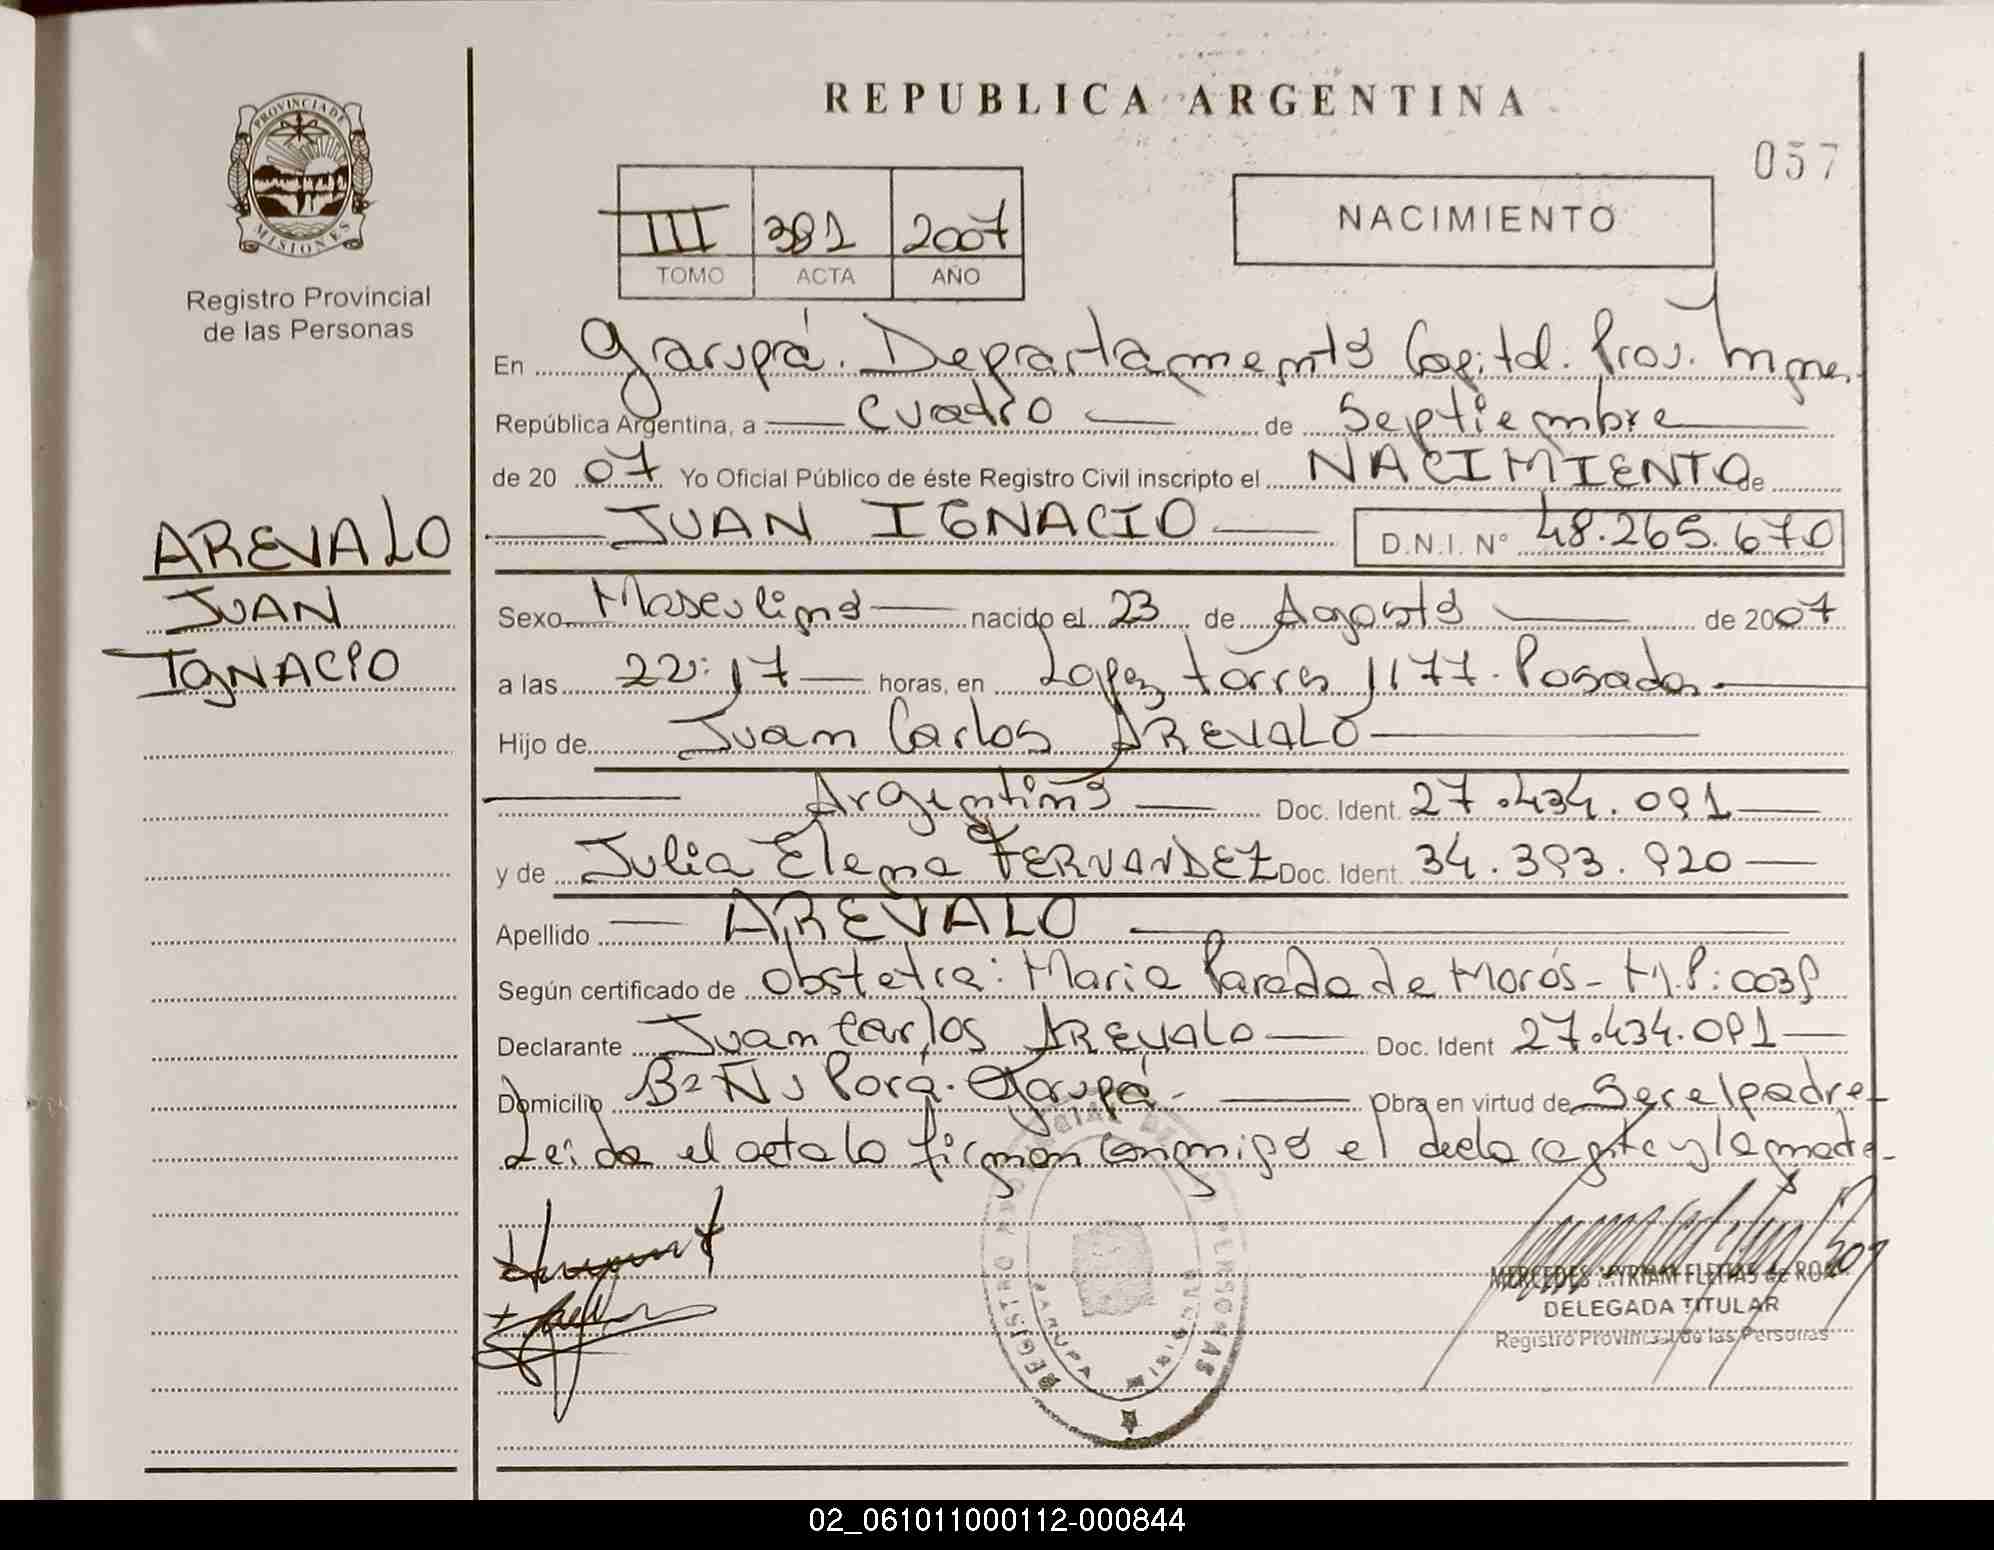 REPUBLICA ARGENTINA
057
PROVINCIA DE
MISIONES
Registro Provincial
de las Personas
III 391 2007
TOMO ACTA AÑO
NACIMIENTO
En Garupá. Departamento Capital. Prov. Mnes.
República Argentina, a cuatro de Septiembre
de 2007 Yo Oficial Público de éste Registro Civil inscripto el NACIMIENTO de
JUAN IGNACIO D.N.I. N° 48.265.670
AREVALO
JUAN
IGNACIO
Sexo Masculino nacido el 23 de Agosto de 2007
a las 22:17 horas, en Lopez torres 1177. Posadas.
Hijo de Juan Carlos AREVALO
Argentino Doc. Ident. 27.434.091
y de Julia Elena FERNANDEZ Doc. Ident. 34.393.920
Apellido AREVALO
Según certificado de Obstetra: Maria Parada de Morós - M.P: 0039
Declarante Juan Carlos AREVALO Doc. Ident 27.434.091
Domicilio Bº Ñu Porá. Garupá - Obra en virtud de Ser el padre-
Leida el acta la firman conmigo el declarante y la madre-
REGISTRO PROVINCIAL DE LAS PERSONAS
GARUPA
MERCEDES MYRIAM FLEITAS de ROA
DELEGADA TITULAR
Registro Provincial de las Personas
02_061011000112-000844